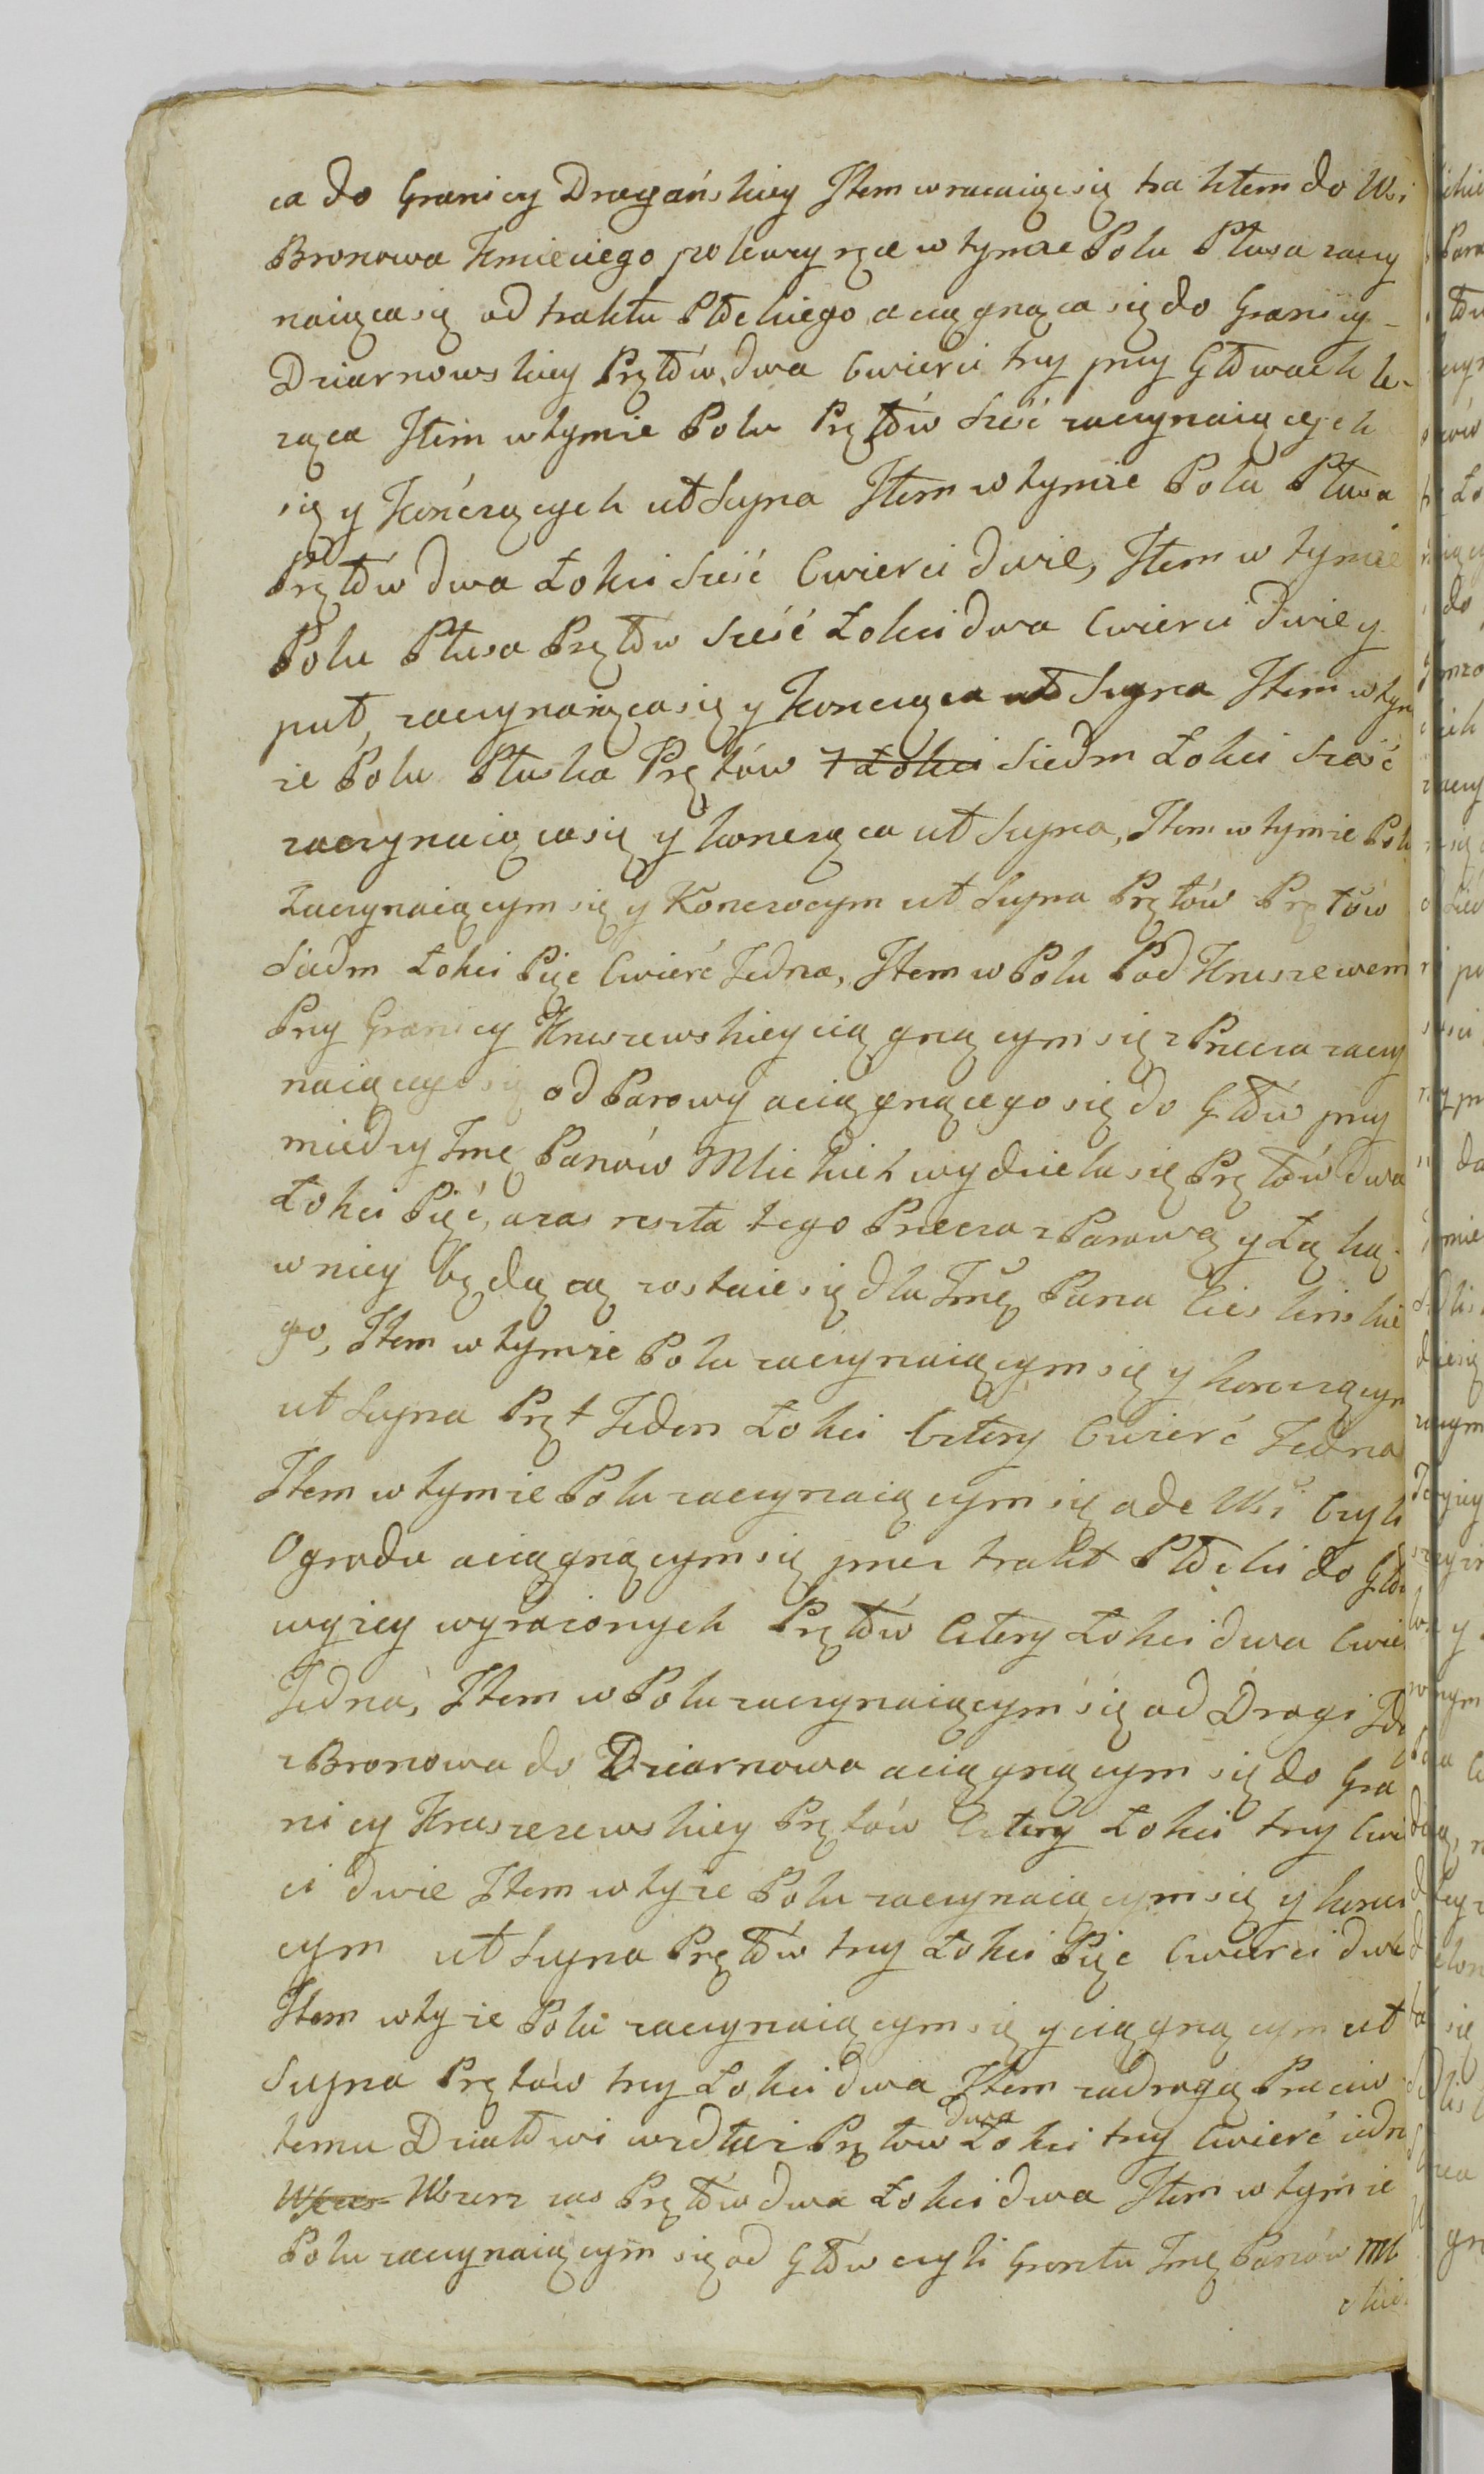 ca do Granicy Dragańskiey Item wracaiąc się traktem do Wsi
Bronowa Kmieciego po lewey ręce w tymze Polu Płusa zaczy
naiąca się od traktu Płockiego a ciągnąca się do Granicy
Dziarnowskiey Prętów dwa Cwierci trzy przy Głowach le-
ząca Item w tymze Polu Prętów szesć zaczynaiących
się y Kończących ut Supra Item w tymze Polu Płusa
Prętów dwa Łokci szesć Cwierci dwie, Item w tymze
Polu Płusa Prętów szesć Łokci dwa Cwierci dwie y
puł, zaczynaiąca się y Koncząca ut Supra Item w tym
ze Polu Płuska Prętów 7 Łokci siedm Łokci szesć
zaczynaiąca się y koncząca ut Supra, Item w tymze Polu
Zaczynaiącym się y Konczocym ut Supra Prętów Prętów
siedm Łokci Pięc Cwierć Jedna, Item w Polu Pod Kruszewem
Przy Granicy Kruszewskiey ciągnącym się z Przecza zaczy
naiącego się od Parowy a ciągnącego się do Głów przy
miedzy Jmę Panów Mlickich wydziela się Prętów dwa
Łokci Pięć, a zas reszta tego Przecza z Parową y Łąką
w niey będącą zostaie się dla Jmę Pana Cieslinskie
go, Item w tymze Polu zaczynaiącym się y kończącym
ut Supra Pręt Jeden Łokci Cztery Cwierć Jedna
Item w tymze Polu zaczynaiącym się ode Wsi Czyli
Ogrodu a ciągnącym się przez trakt Płocki do Głów
wyzey wyrazonych Prętów Cztery Łokci dwa Cwierć
Jedna, Item w Polu zaczynaiącym się od Drogi Jdą
z Bronowa do Dziarnowa a ciągnącym się do Gra
nicy Kruszezewskiey Prętów Cztery Łokci trzy Cwier
ci dwie Item w tyze Polu zaczynaiącym się y koncz
cym ut Supra Prętów trzy Łokci Pięc Cwierci dwie
Item w tyze Polu zaczynaiącym się y ciągnącym ut
Supra Prętów trzy Łokci dwa Item za drogą Przeciw
temu Działowi wzdłuz Prętow dwa Łokci trzy Cwierć iedn
Wszer Wszerz zas Prętów dwa Łokci dwa Item w tymze
Polu zaczynaiącym się od Głów czyli Gruntu Jmę Panów Ml
ckich